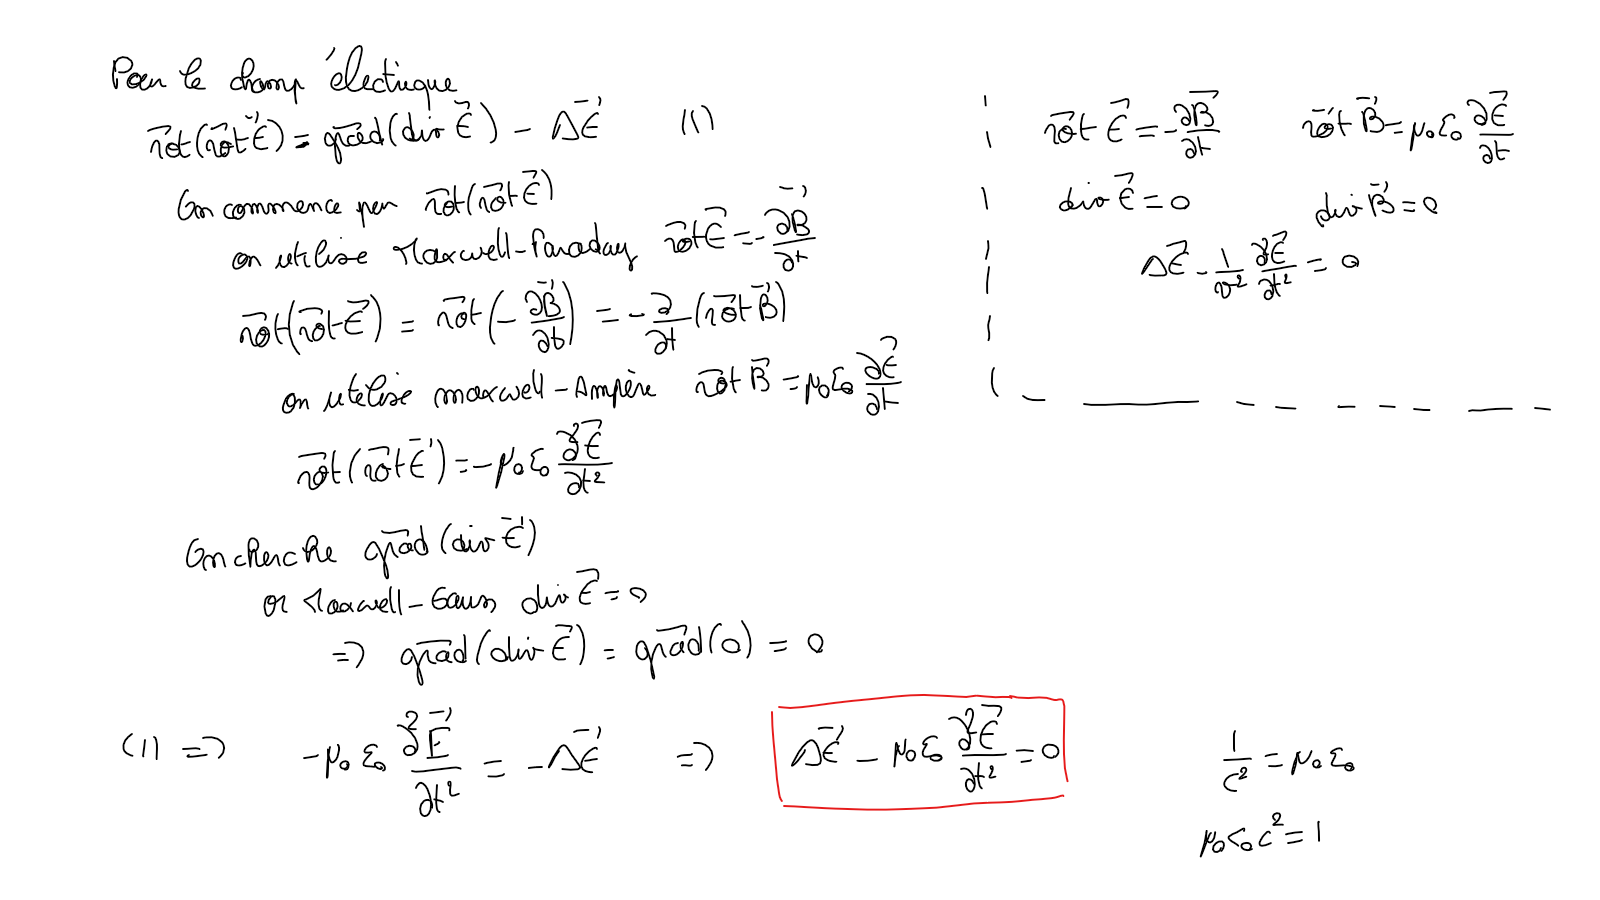 Pour le champ électrique
r⃗ot(r⃗ot E⃗) = gr⃗ad(div E⃗) - ΔE⃗ (1)
On commence par r⃗ot(r⃗ot E⃗)
on utilise Maxwell-Faraday r⃗ot E⃗ = -∂B⃗/∂t
r⃗ot(r⃗ot E⃗) = r⃗ot(-∂B⃗/∂t) = -∂/∂t (r⃗ot B⃗)
on utilise maxwell-Ampère r⃗ot B⃗ = μ₀ε₀ ∂E⃗/∂t
r⃗ot(r⃗ot E⃗) = -μ₀ε₀ ∂²E⃗/∂t²
On cherche gr⃗ad(div E⃗)
or Maxwell-Gauss div E⃗ = 0
=> gr⃗ad(div E⃗) = gr⃗ad(0) = 0
(1) => -μ₀ε₀ ∂²E⃗/∂t² = -ΔE⃗ => ΔE⃗ - μ₀ε₀ ∂²E⃗/∂t² = 0
r⃗ot E⃗ = -∂B⃗/∂t r⃗ot B⃗ = μ₀ε₀ ∂E⃗/∂t
div E⃗ = 0 div B⃗ = 0
ΔE⃗ - 1/v² ∂²E⃗/∂t² = 0
1/c² = μ₀ε₀
μ₀ε₀c² = 1